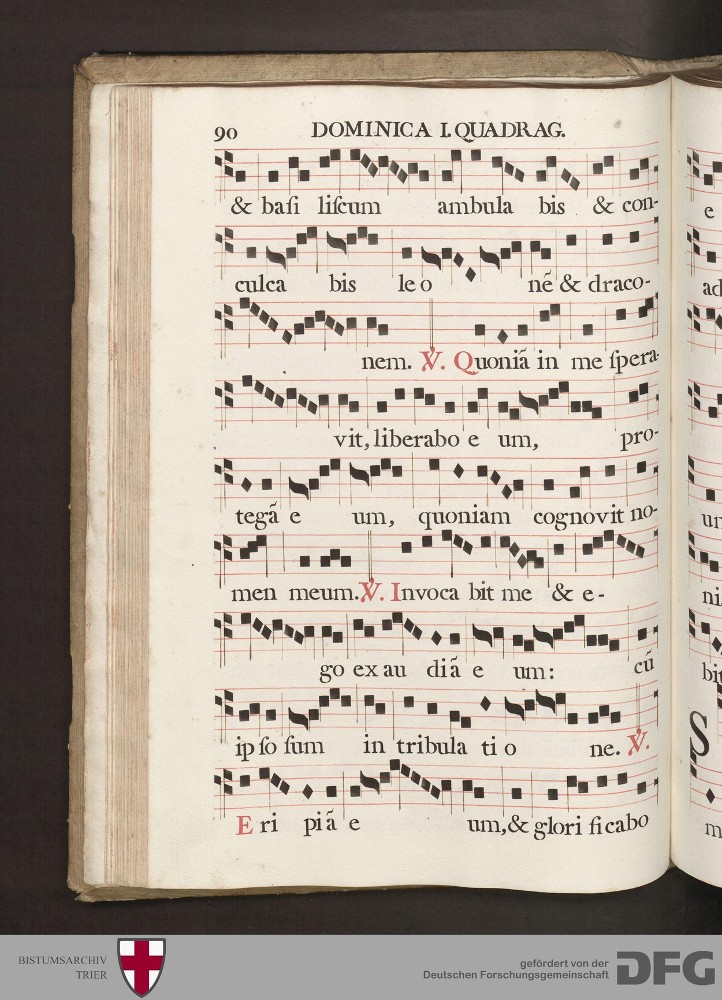 90 DOMINICA I. QUADRAG.
& baſi liſcum ambula bis & con-
culca bis leo nē & draco-
nem. ℣. Quoniā in me ſpera-
vit, liberabo e um, pro-
tegā e um, quoniam cognovit no-
men meum. ℣. Invoca bit me & e-
go ex au diā e um: cū
ip ſo ſum in tribula ti o ne. ℣.
E ri pi ā e um, & glori ficabo
e
ni
bit
S
m
BISTUMSARCHIV
TRIER
gefördert von der
Deutschen Forschungsgemeinschaft
DFG